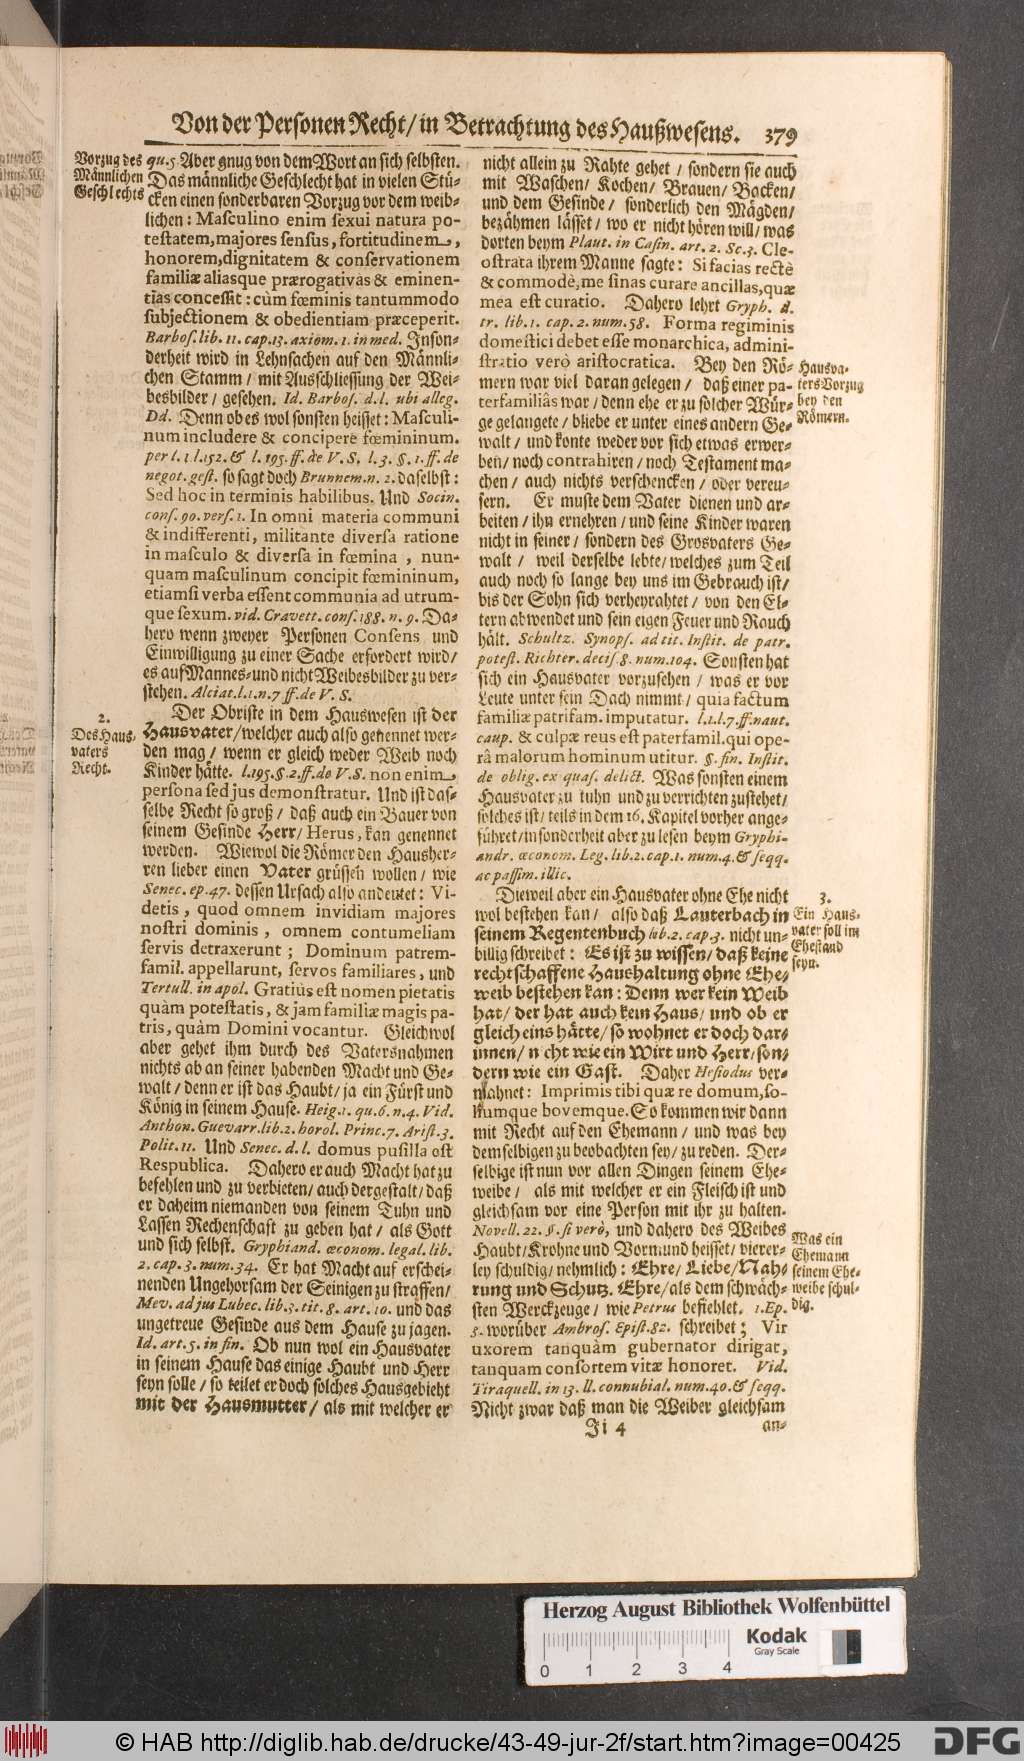 Von der Personen Recht/ in Betrachtung des Haußwesens. 379
Vorzug des
Männlichen
Geschlechts
qu. 5 Aber gnug von dem Wort an sich selbsten.
Das männliche Geschlecht hat in vielen Stü-
cken einen sonderbaren Vorzug vor dem weib-
lichen: Masculino enim sexui natura po-
testatem, majores sensus, fortitudinem,
honorem, dignitatem & conservationem
familiæ aliasque prærogativas & eminen-
tias concessit: cùm fœminis tantummodo
subjectionem & obedientiam præceperit.
Barbos. lib. 11. cap. 13. axiom. 1. in med. Inson-
derheit wird in Lehnsachen auf den Männli-
chen Stamm/ mit Ausschliessung der Wei-
besbilder/ gesehen. Id. Barbos. d. l. ubi alleg.
Dd. Denn ob es wol sonsten heisset: Masculi-
num includere & concipere fœmininum.
per l. 1 l. 152. & l. 195. ff. de V. S. l. 3. §. 1. ff. de
negot. gest. so sagt doch Brunnem. n. 2. daselbst:
Sed hoc in terminis habilibus. Und Socin.
cons. 90. vers. 1. In omni materia communi
& indifferenti, militante diversa ratione
in masculo & diversa in fœmina, nun-
quam masculinum concipit fœmininum,
etiamsi verba essent communia ad utrum-
que sexum. vid. Cravett. cons. 188. n. 9. Da-
hero wenn zweyer Personen Consens und
Einwilligung zu einer Sache erfordert wird/
es auf Mannes- und nicht Weibesbilder zu ver-
stehen. Alciat. l. 1. n. 7 ff. de V. S.
2.
Des Haus-
vaters
Recht.
Der Obriste in dem Hauswesen ist der
Hausvater/ welcher auch also genennet wer-
den mag/ wenn er gleich weder Weib noch
Kinder hätte. l. 195. §. 2. ff. de V. S. non enim
persona sed jus demonstratur. Und ist das-
selbe Recht so groß/ daß auch ein Bauer von
seinem Gesinde Herr/ Herus, kan genennet
werden. Wiewol die Römer den Hausher-
ren lieber einen Vater grüssen wollen/ wie
Senec. ep. 47. dessen Ursach also andeutet: Vi-
detis, quod omnem invidiam majores
nostri dominis, omnem contumeliam
servis detraxerunt; Dominum patrem-
famil. appellarunt, servos familiares, und
Tertull. in apol. Gratiùs est nomen pietatis
quàm potestatis, & jam familiæ magis pa-
tris, quàm Domini vocantur. Gleichwol
aber gehet ihm durch des Vatersnahmen
nichts ab an seiner habenden Macht und Ge-
walt/ denn er ist das Haubt/ ja ein Fürst und
König in seinem Hause. Heig. 1. qu. 6. n. 4. Vid.
Anthon. Guevarr. lib. 2. horol. Princ. 7. Arist. 3.
Polit. 11. Und Senec. d. l. domus pusilla est
Respublica. Dahero er auch Macht hat zu
befehlen und zu verbieten/ auch dergestalt/ daß
er daheim niemanden von seinem Tuhn und
Lassen Rechenschaft zu geben hat/ als Gott
und sich selbst. Gryphiand. œconom. legal. lib.
2. cap. 3. num. 34. Er hat Macht auf erschei-
nenden Ungehorsam der Seinigen zu straffen/
Mev. ad jus Lubec. lib. 3. tit. 8. art. 10. und das
ungetreue Gesinde aus dem Hause zu jagen.
Id. art. 5. in fin. Ob nun wol ein Hausvater
in seinem Hause das einige Haubt und Herr
seyn solle/ so teilet er doch solches Hausgebieht
mit der Hausmutter/ als mit welcher er
nicht allein zu Rahte gehet/ sondern sie auch
mit Waschen/ Kochen/ Brauen/ Backen/
und dem Gesinde/ sonderlich den Mägden/
bezähmen lässet/ wo er nicht hören will/ was
dorten beym Plaut. in Casin. art. 2. Sc. 3. Cle-
ostrata ihrem Manne sagte: Si facias rectè
& commodè, me sinas curare ancillas, quæ
mea est curatio. Dahero lehrt Gryph. d.
tr. lib. 1. cap. 2. num. 58. Forma regiminis
domestici debet esse monarchica, admini-
stratio verò aristocratica. Bey den Rö-
mern war viel daran gelegen/ daß einer pa-
terfamiliâs war/ denn ehe er zu solcher Wür-
ge gelangete/ bliebe er unter eines andern Ge-
walt/ und konte weder vor sich etwas erwer-
ben/ noch contrahiren/ noch Testament ma-
chen/ auch nichts verschencken/ oder vereu-
sern. Er muste dem Vater dienen und ar-
beiten/ ihn ernehren/ und seine Kinder waren
nicht in seiner/ sondern des Grosvaters Ge-
walt/ weil derselbe lebte/ welches zum Teil
auch noch so lange bey uns im Gebrauch ist/
bis der Sohn sich verheyrahtet/ von den El-
tern abwendet und sein eigen Feuer und Rauch
hält. Schultz. Synops. ad tit. Instit. de patr.
potest. Richter. decis. 8. num. 104. Sonsten hat
sich ein Hausvater vorzusehen/ was er vor
Leute unter sein Dach nimmt/ quia factum
familiæ patrifam. imputatur. l. 1. l. 7. ff. naut.
caup. & culpæ reus est paterfamil. qui ope-
râ malorum hominum utitur. §. fin. Instit.
de oblig. ex quas. delict. Was sonsten einem
Hausvater zu tuhn und zu verrichten zustehet/
solches ist/ teils in dem 16. Kapitel vorher ange-
führet/ insonderheit aber zu lesen beym Gryphi-
andr. œconom. Leg. lib. 2. cap. 1. num. 4. & seqq.
ac passim. illic.
Hausva-
ters Vorzug
bey den
Römern.
Dieweil aber ein Hausvater ohne Ehe nicht
wol bestehen kan/ also daß Lauterbach in
seinem Regentenbuch lib. 2. cap. 3. nicht un-
billig schreibet: Es ist zu wissen/ daß keine
rechtschaffene Haushaltung ohne Ehe-
weib bestehen kan: Denn wer kein Weib
hat/ der hat auch kein Haus/ und ob er
gleich eins hätte/ so wohnet er doch dar-
innen/ nicht wie ein Wirt und Herr/ son-
dern wie ein Gast. Daher Hesiodus ver-
mahnet: Imprimis tibi quære domum, so-
liumque bovemque. So kommen wir dann
mit Recht auf den Ehemann/ und was bey
demselbigen zu beobachten sey/ zu reden. Der-
selbige ist nun vor allen Dingen seinem Ehe-
weibe/ als mit welcher er ein Fleisch ist und
gleichsam vor eine Person mit ihr zu halten.
Novell. 22. §. si verò, und dahero des Weibes
Haubt/ Krohne und Vormund heisset/ vierer-
ley schuldig/ nehmlich: Ehre/ Liebe/ Nah-
rung und Schutz. Ehre/ als dem schwäch-
sten Werckzeuge/ wie Petrus befiehlet. 1. Ep.
3. worüber Ambros. Epist. 82. schreibet; Vir
uxorem tanquàm gubernator dirigat,
tanquam consortem vitæ honoret. Vid.
Tiraquell. in 13. ll. connubial. num. 40. & seqq.
Nicht zwar daß man die Weiber gleichsam
3.
Ein Haus-
vater soll im
Ehestand
seyn.
Was ein
Ehemann
seinem Ehe-
weibe schul-
dig.
Ji 4
an-
Herzog August Bibliothek Wolfenbüttel
0 1 2 3 4
Kodak
Gray Scale
© HAB http://diglib.hab.de/drucke/43-49-jur-2f/start.htm?image=00425
DFG